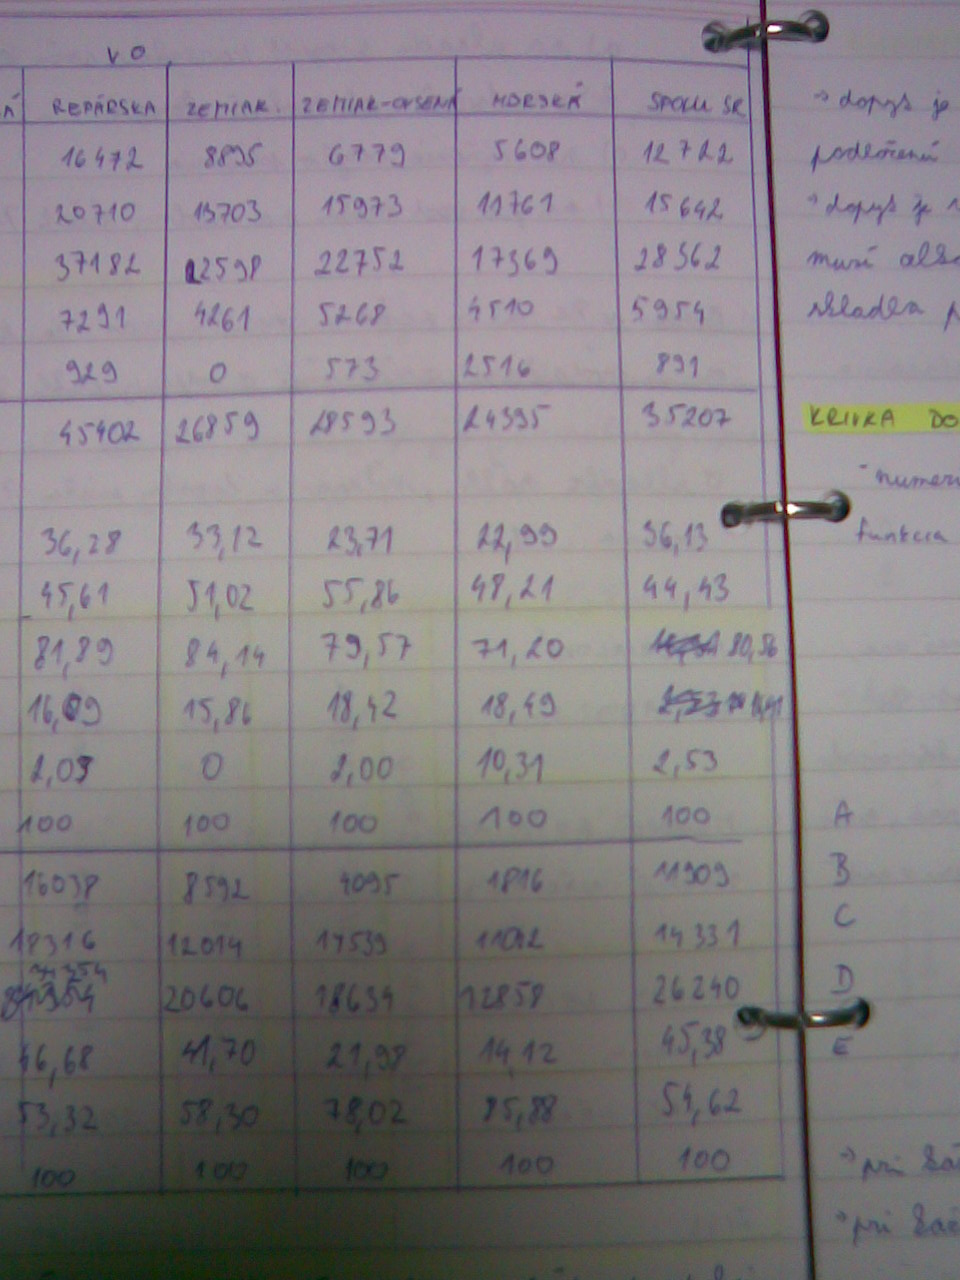 V O
REPÁRSKA ZEMIAK. ZEMIAK-OVSENÁ HORSKÁ SPOLU SR
16472 8895 6779 5608 12722
20710 13703 15973 11761 15642
37182 22598 22752 17369 28362
7291 4261 5268 4510 5954
929 0 573 2516 891
45402 26859 28593 24395 35207
36,28 33,12 23,71 22,99 36,13
45,61 51,02 55,86 48,21 44,43
81,89 84,14 79,57 71,20 80,56
16,09 15,86 18,42 18,49
2,05 0 2,00 10,31 2,53
100 100 100 100 100
16038 8592 4095 1816 11909
18316 12014 14539 11042 14331
34354
20606 18634 12858 26240
46,68 41,70 21,98 14,12 45,38
53,32 58,30 78,02 85,88 54,62
100 100 100 100 100
→ dopyt je
→ dopyt je
musí
KRIVKA DO
funkcia
A
B
C
D
E
→ pri
→ pri